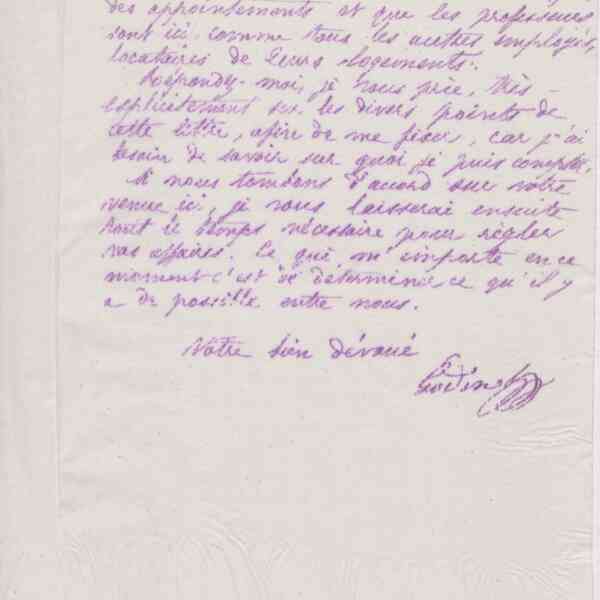 des appointements et que les professeurs
sont ici comme tous les autres employés,
locataires de leurs logements.
Répondez-moi, je vous prie, très
explicitement sur les divers points de
cette lettre, afin de me fixer, car j'ai
besoin de savoir sur quoi je puis compter.
Si nous tombons d'accord sur votre
venue ici, je vous laisserai ensuite
tout le temps nécessaire pour régler
vos affaires. Ce qui m'importe en ce
moment c'est de déterminer ce qu'il y
a de possible entre nous.
Votre bien dévoué
Godin